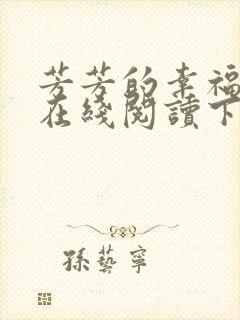 芳芳的幸福
在綫閱讀下
孫藝寧